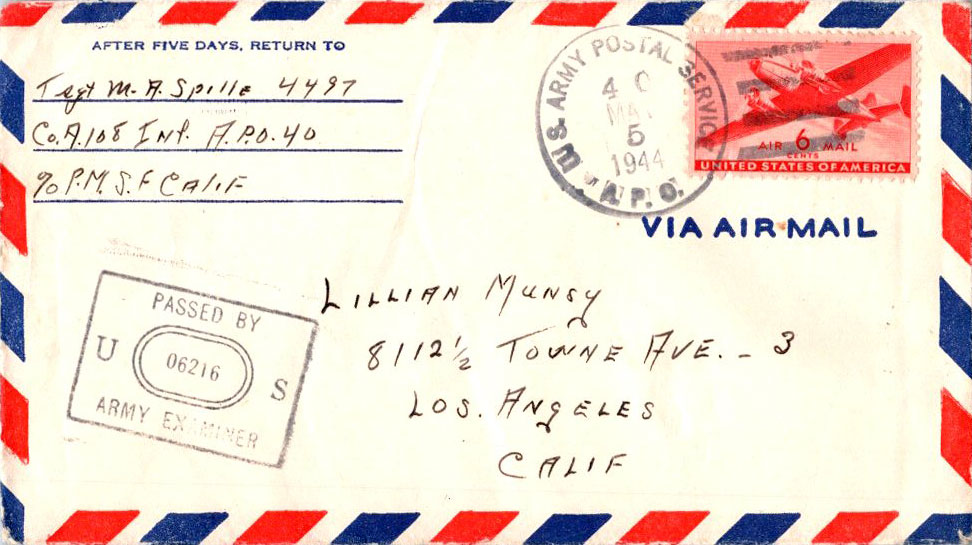 AFTER FIVE DAYS, RETURN TO
Tsgt M. A. Spille 4497
Co. A. 108 Inf. A.P.O. 40
% P.M. S.F CALIF
U.S. ARMY POSTAL SERVICE
4 0
MAR
5
1944
A.P.O.
AIR 6 MAIL
CENTS
UNITED STATES OF AMERICA
VIA AIR MAIL
PASSED BY
U 06216 S
ARMY EXAMINER
LILLIAN MUNSY
8112 1/2 TOWNE AVE. - 3
LOS. ANGELES
CALIF